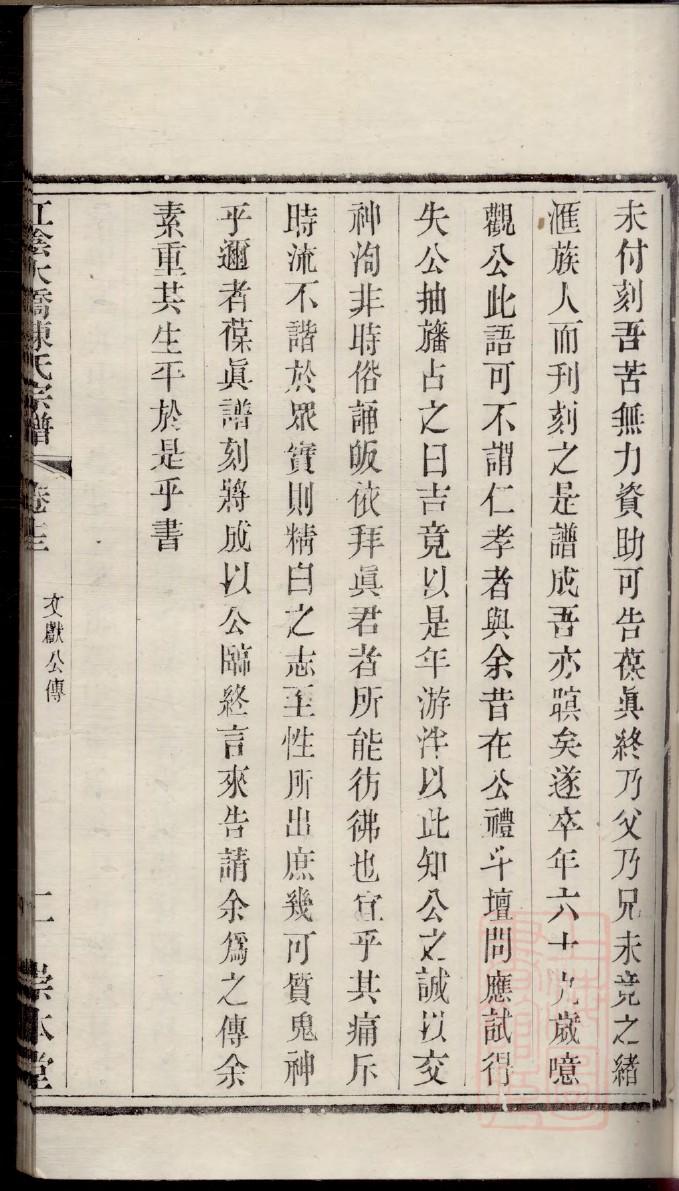 未付刻吾苦無力資助可告葆眞終乃父乃兄未竟之緒
滙族人而刊刻之是譜成吾亦瞑矣遂卒年六十九歲噫
觀公此語可不謂仁孝者與余昔在公禮斗壇問應試得
失公抽籓占之曰吉竟以是年游泮以此知公之誠以交
神洵非時俗誦皈依拜眞君者所能彷彿也宜乎其痛斥
時流不諧於眾實則精白之志至性所出庶幾可質鬼神
乎邇者葆眞譜刻將成以公臨終言來告請余爲之傳余
素重其生平於是乎書
江陰大橋陳氏宗譜
文獻公傳
二
崇本堂